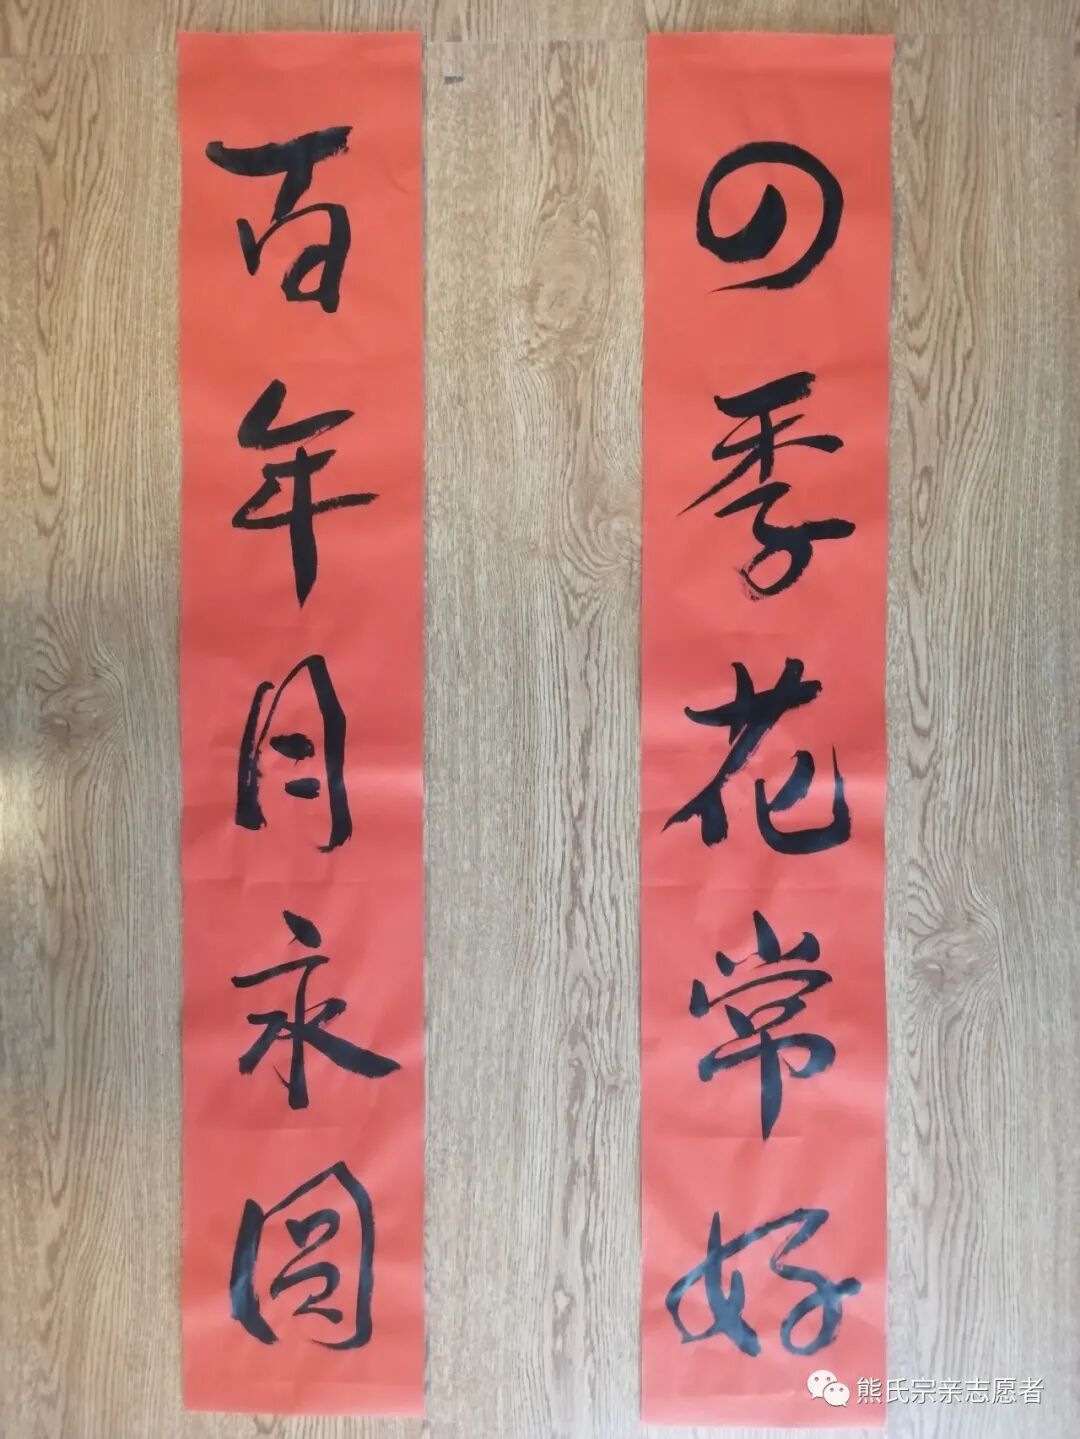 四季花常好
百年月永圆
熊氏宗亲志愿者